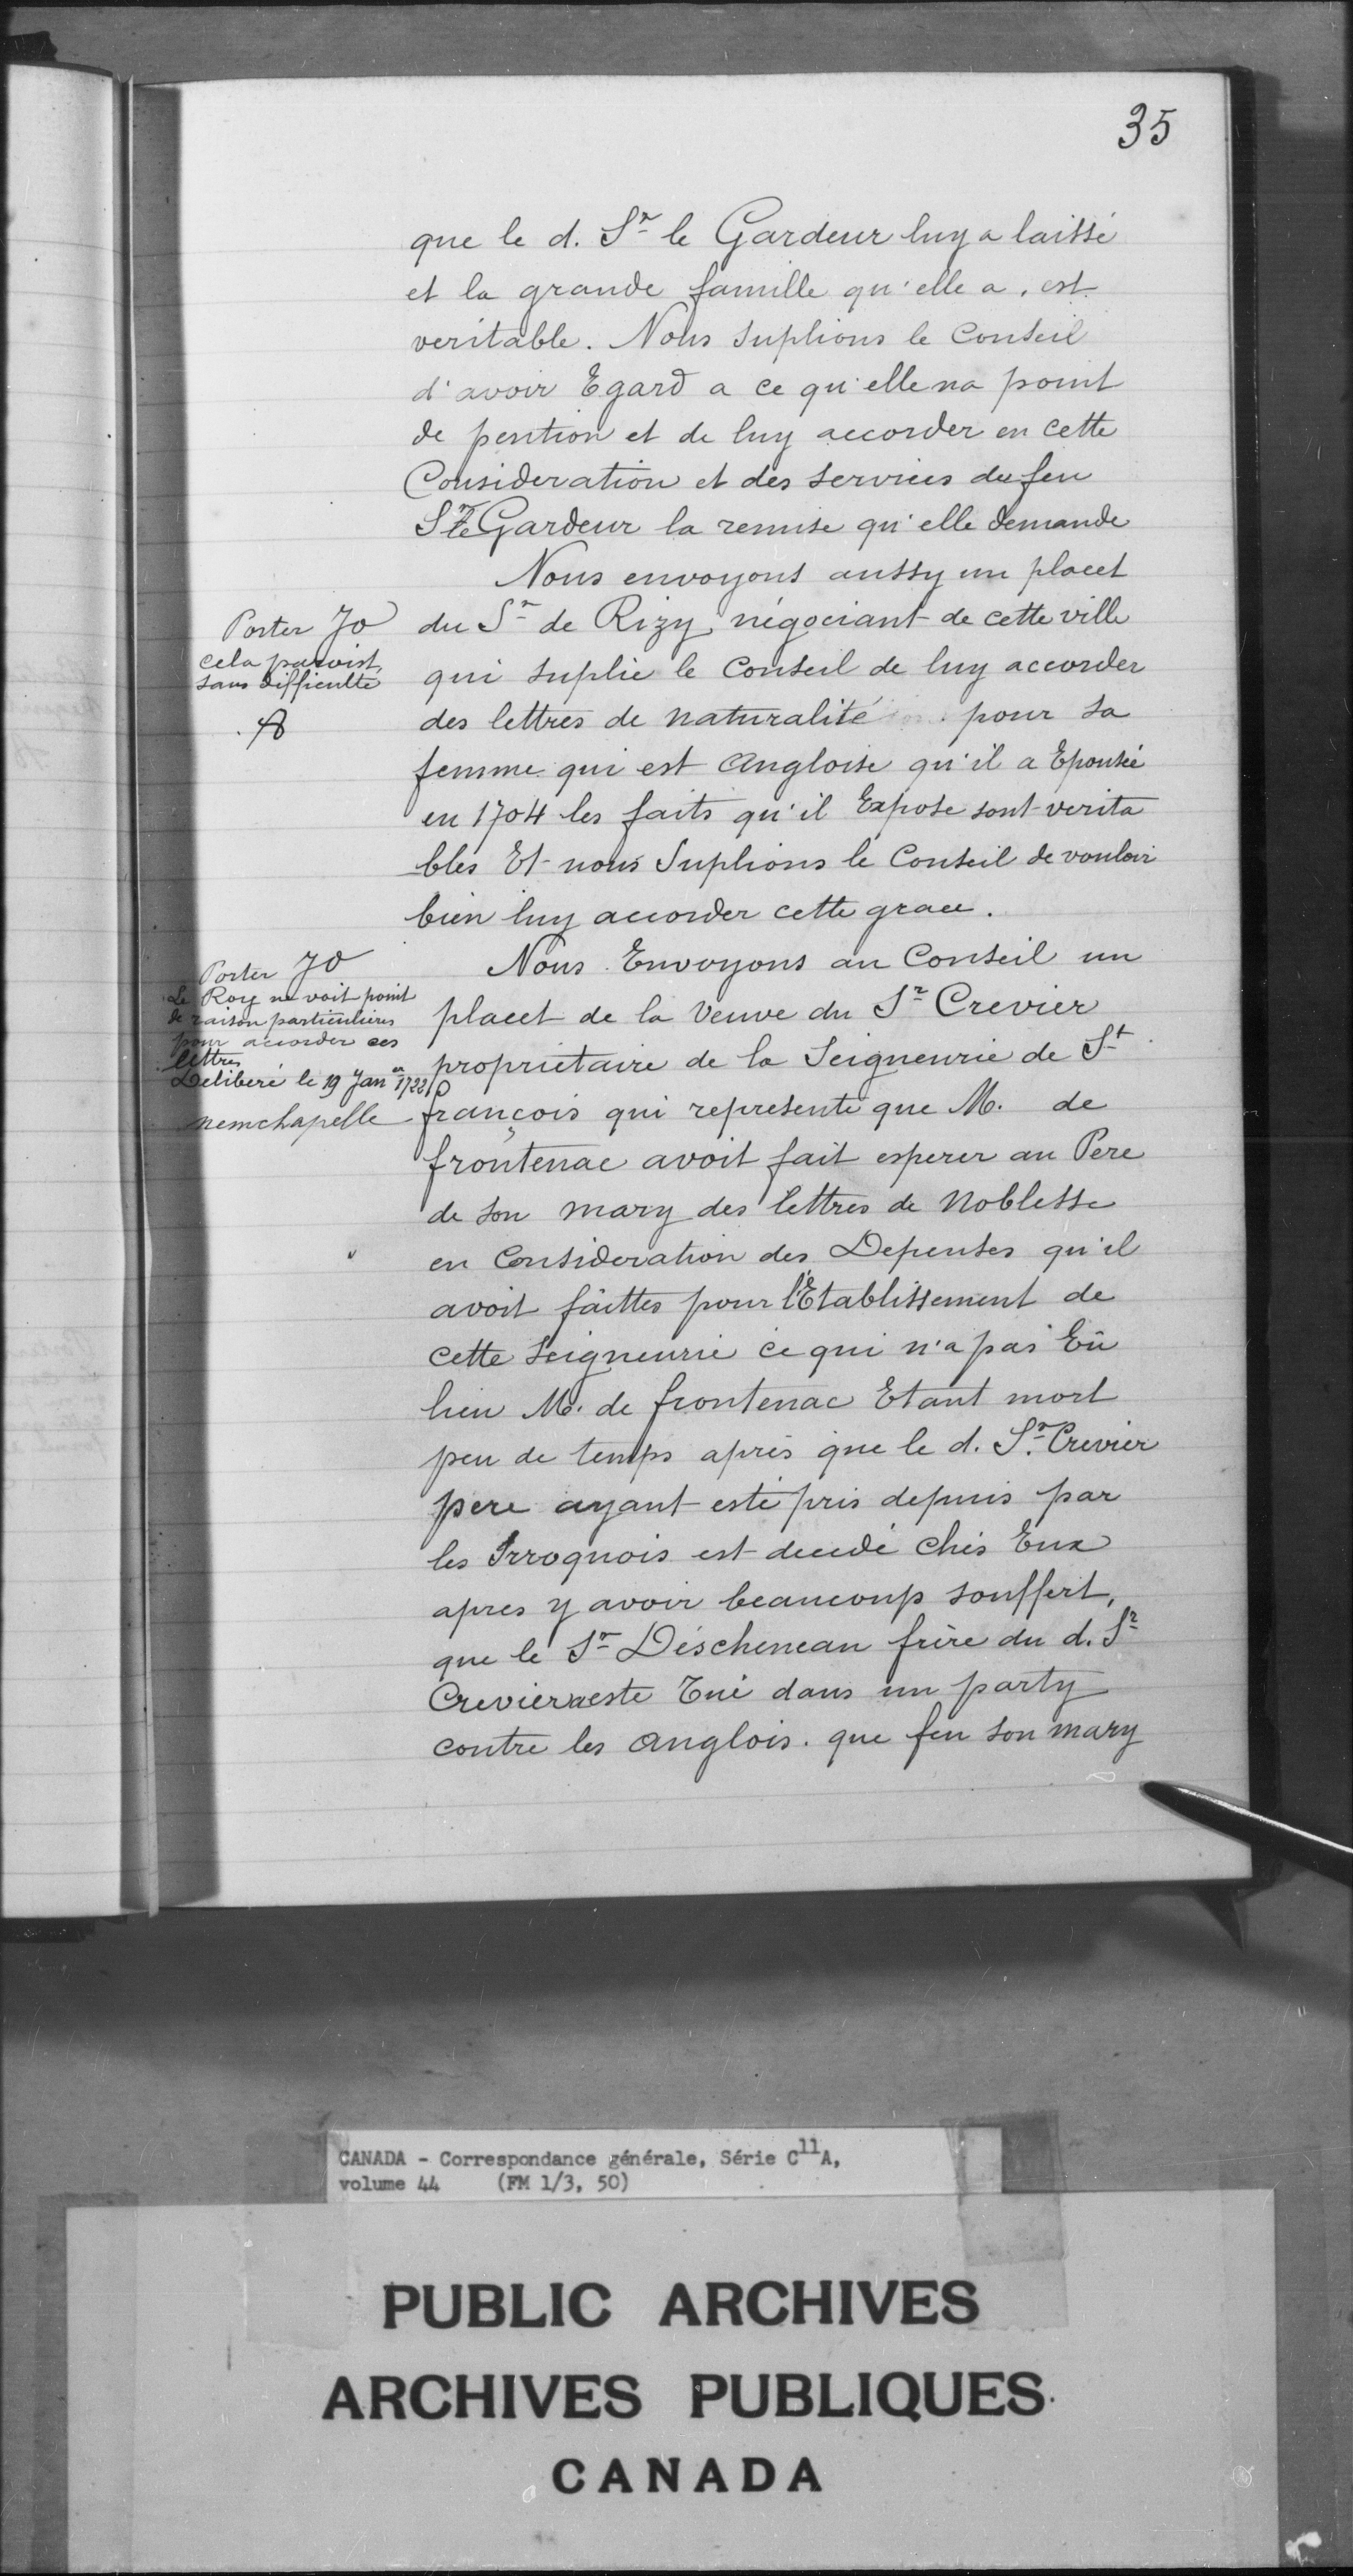 35
que le d. Sr le Gardeur luy a laissé
et la grande famille qu'elle a, est
veritable. Nous suplions le Conseil
d'avoir Egard a ce qu'elle na point
de pention et de luy accorder en cette
Consideration et des services du feu
Sr le Gardeur la remise qu'elle demande
Nous envoyons aussy un placet
Porter
cela paroist
sans difficulté
du Sr de Rizy négociant de cette ville
qui suplie le Conseil de luy accorder
des lettres de naturalité pour sa
femme qui est Angloise qu'il a Epousée
en 1704 les faits qu'il Expose sont verita
bles Et nous Suplions le Conseil de vouloir
bien luy accorder cette grace.
Porter
Le Roy ne voit point
de raison particulieres
pour accorder ces
lettres
Deliberé le 19 Janer 1722
nemchapelle
Nous Envoyons au Conseil un
placet de la Veuve du Sr Crevier
proprietaire de la Seigneurie de St
françois qui represente que M. de
frontenac avoit fait esperer au Pere
de son mary des lettres de Noblesse
en Consideration des Depenses qu'il
avoit faittes pour l'Etablissement de
cette Seigneurie ce qui n'a pas Eû
lieu M. de frontenac Etant mort
peu de temps après que le d. Sr Crevier
pere ayant esté pris depuis par
les Irroquois est decedé chés Eux
apres y avoir beaucoup souffert,
que le Sr Déscheneau frère du d. Sr
Crevier a este Tué dans un party
contre les anglois. que feu son mary
CANADA - Correspondance générale, Série C11A,
volume 44 (FM 1/3, 50)
PUBLIC ARCHIVES
ARCHIVES PUBLIQUES
CANADA